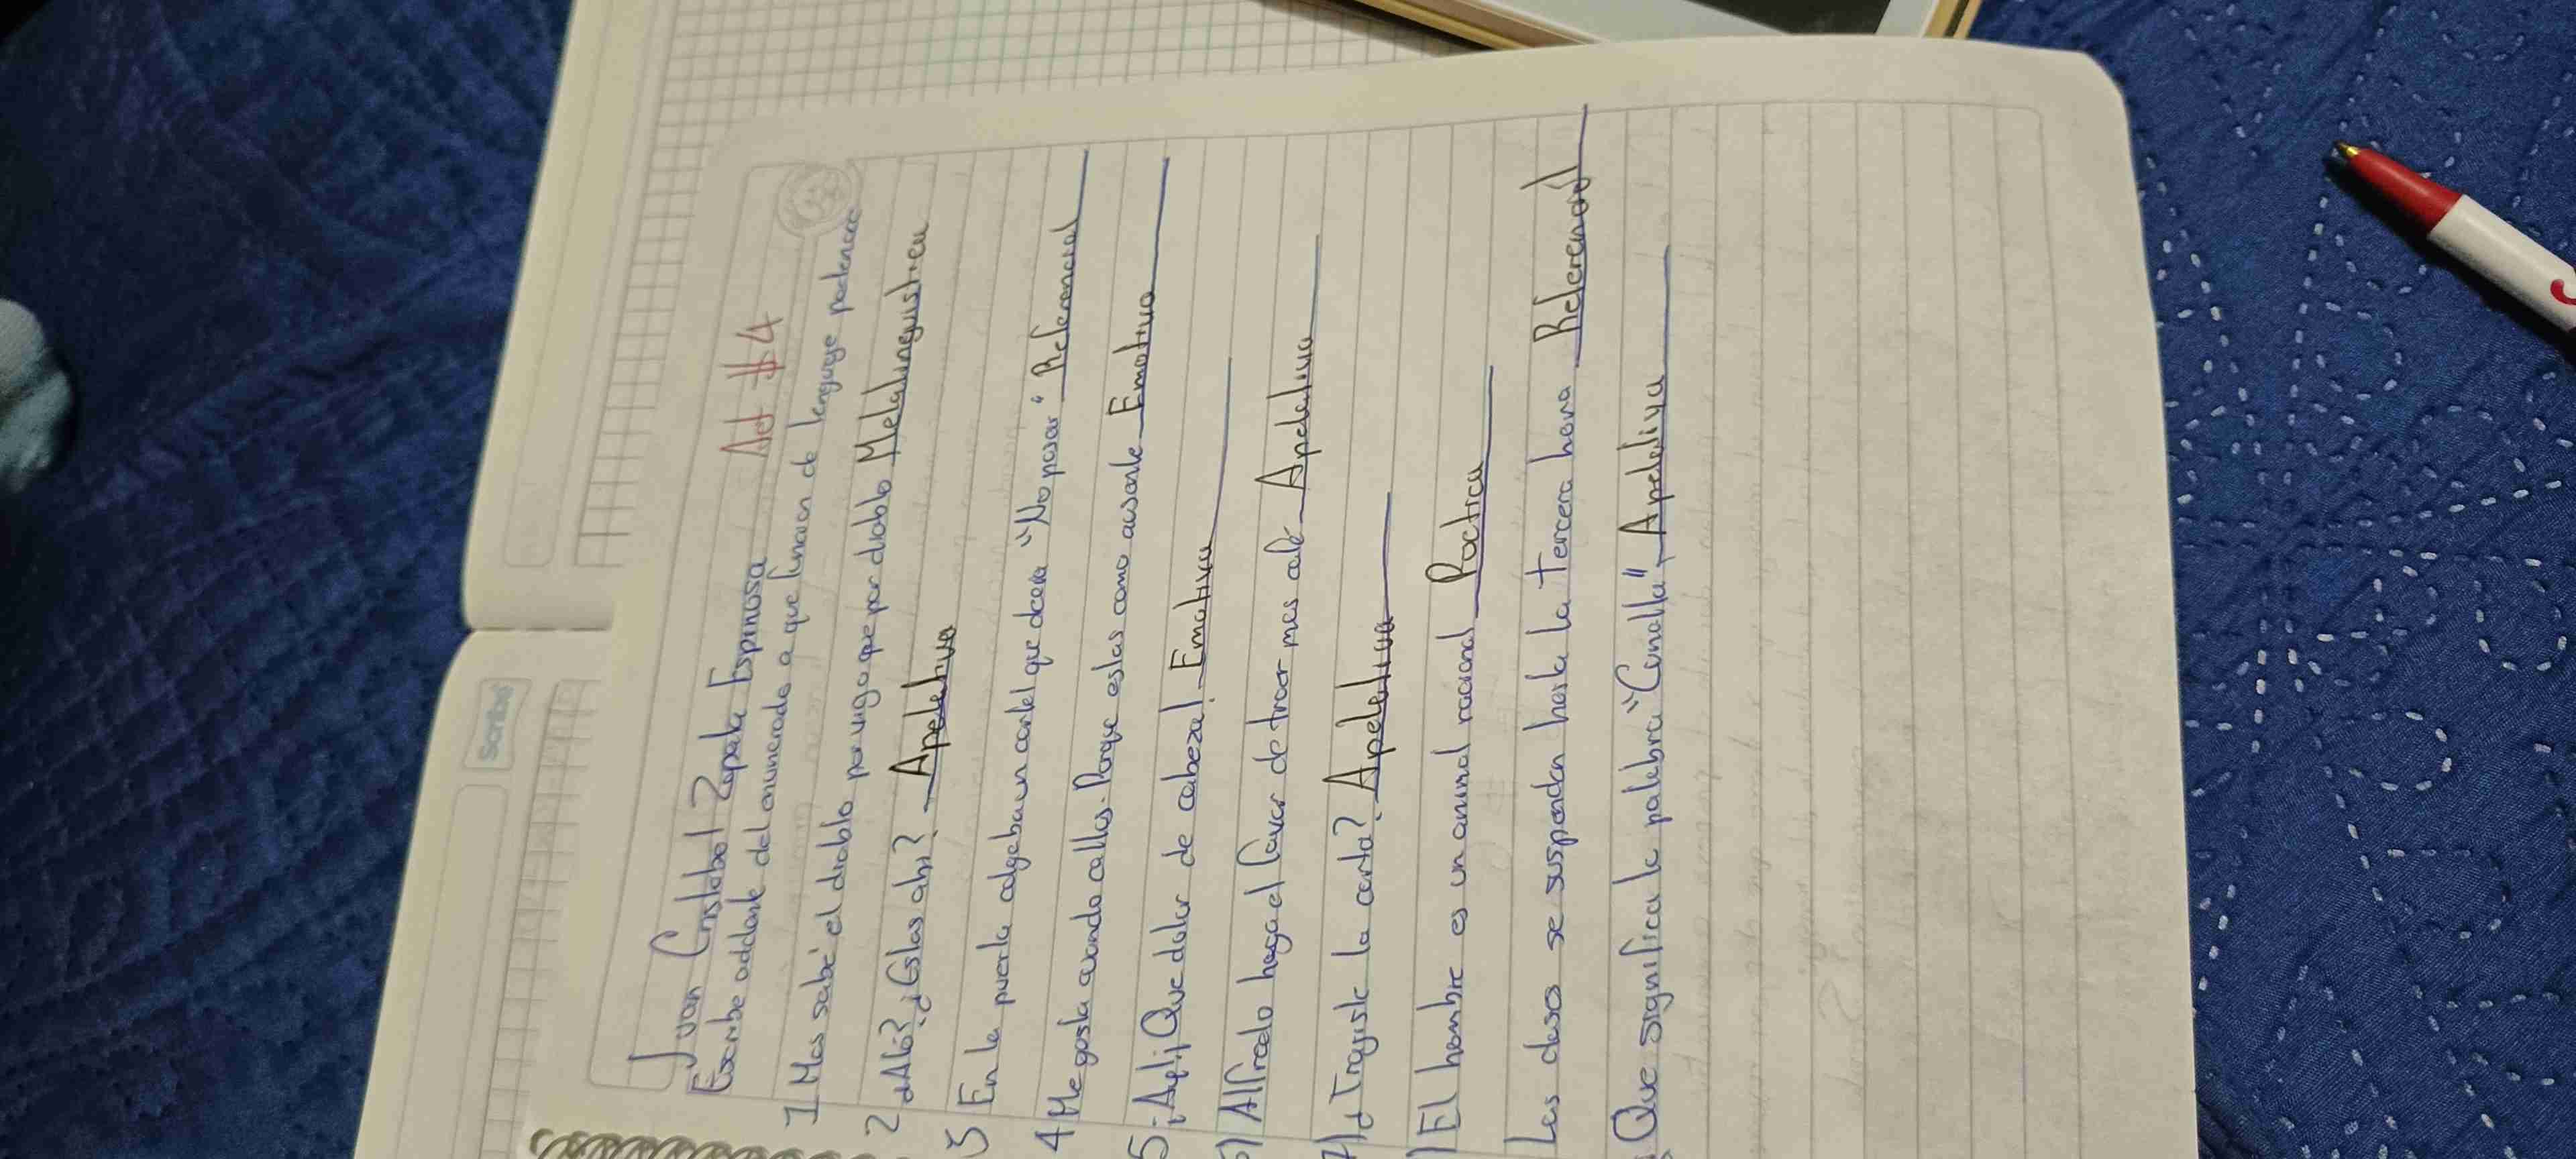 Juan Cristobal Zapata Espinosa Act #4
Escribe adelante del enunciado a que funcion de lenguaje pertenece
1 Mas sabe el diablo por viejo que por diablo Metalinguistica
2 ¿Aló? ¿Estas ahi? Apelativa
3 En la puerta colgaba un cartel que decia "No pasar" Referencial
4 Me gusta cuando callas. Porque estas como ausente Emotiva
5 ¡Ay! ¡Que dolor de cabeza! Emotiva
6) Alfredo haga el favor de traer mes café Apelativa
7) ¿Trajiste la carta? Apelativa
) El hombre es un animal racional Poetica
Las clases se suspenden hasta la tercera hora Referencial
¿Que significa la palabra "Canalla" Apelativa
Scribe